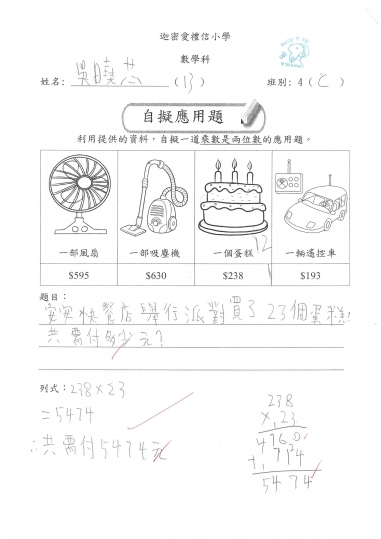 迦密愛禮信小學
數學科
姓名: 吳曉芯 (13) 班別: 4 (C)
自擬應用題
利用提供的資料，自擬一道乘數是兩位數的應用題。
一部風扇 一部吸塵機 一個蛋糕 一輛遙控車
$595 $630 $238 $193
題目:
安安快餐店舉行派對買了23個蛋糕,
共需付多少元?
列式: 238×23
=5474
∴共需付5474元
238
×,23
4760
+,714
5474